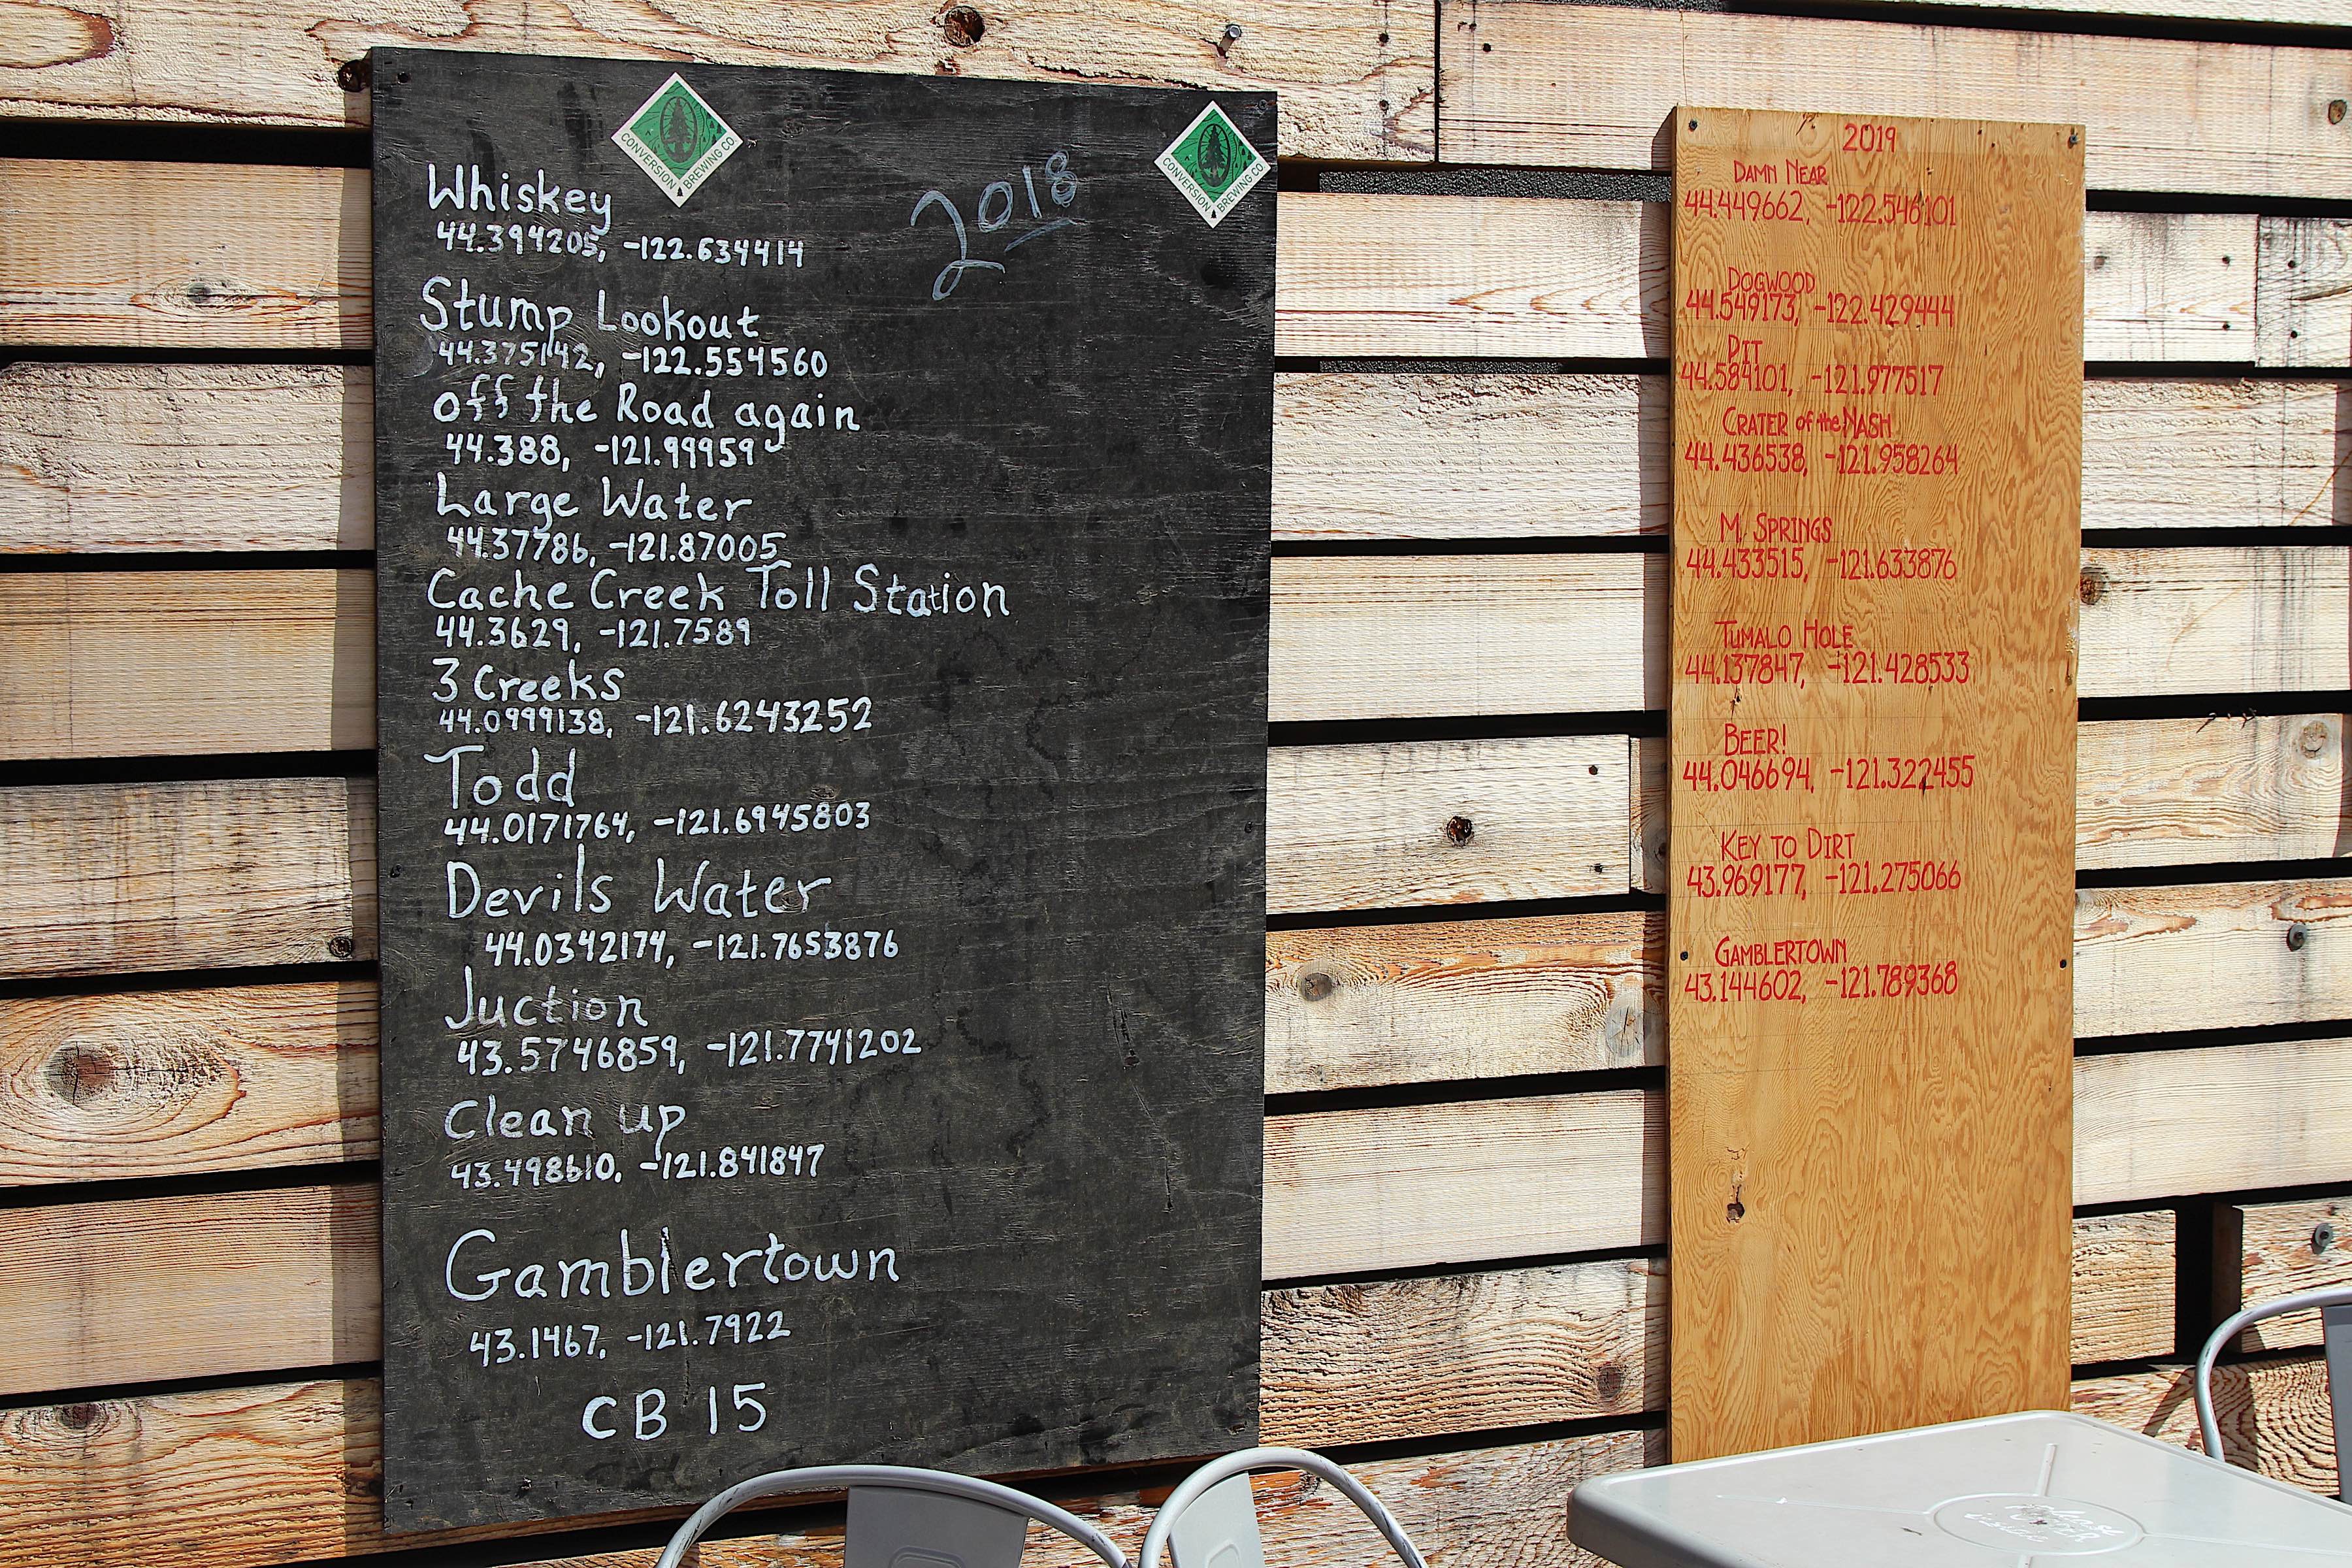 CONVERSION BREWING CO
CONVERSION BREWING CO
2018
Whiskey
44.394205, -122.634414
Stump Lookout
44.375142, -122.554560
off the Road again
44.388, -121.99959
Large Water
44.37786, -121.87005
Cache Creek Toll Station
44.3629, -121.7589
3 Creeks
44.0999138, -121.6243252
Todd
44.0171764, -121.6945803
Devils Water
44.0342174, -121.7653876
Juction
43.5746859, -121.7741202
Clean up
43.498610, -121.841847
Gamblertown
43.1467, -121.7922
CB 15
2019
DAMN NEAR
44.449662, -122.546101
DOGWOOD
44.549173, -122.429444
PIT
44.584101, -121.977517
CRATER of the NASH
44.436538, -121.958264
M. SPRINGS
44.433515, -121.633876
TUMALO HOLE
44.137847, -121.428533
BEER!
44.046694, -121.322455
KEY TO DIRT
43.969177, -121.275066
GAMBLERTOWN
43.144602, -121.789368